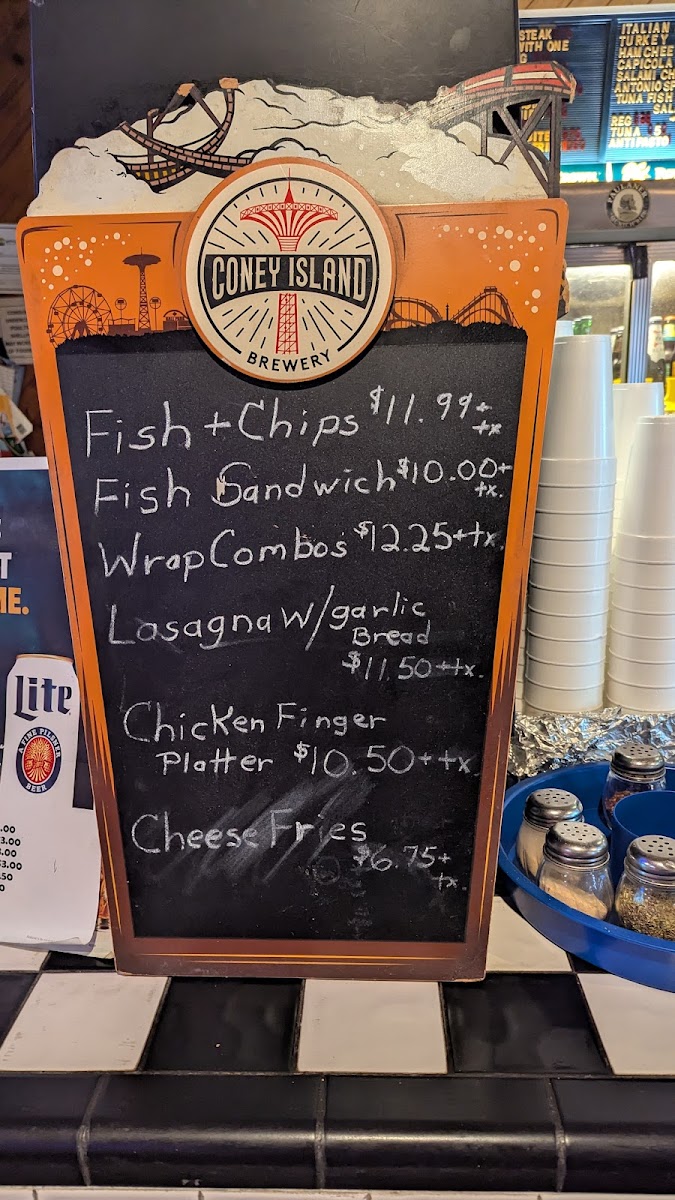 STEAK
WITH ONE
ITALIAN
TURKEY
HAM CHEE
CAPICOLA
SALAMI CH
ANTONIO SP
TUNA FISH
SAL
REG
TUNA
ANTIPASTO
CONEY ISLAND
BREWERY
Fish + Chips $11.99+
tx
Fish Sandwich $10.00+
tx.
Wrap Combos $12.25++x.
Lasagna w/garlic
Bread
$11.50++x.
Chicken Finger
Platter $10.50++x.
Cheese Fries
$6.75+
tx.
T
E.
Lite
A FINE PILSNER
BEER
.00
3.00
.00
3.00
.50
0